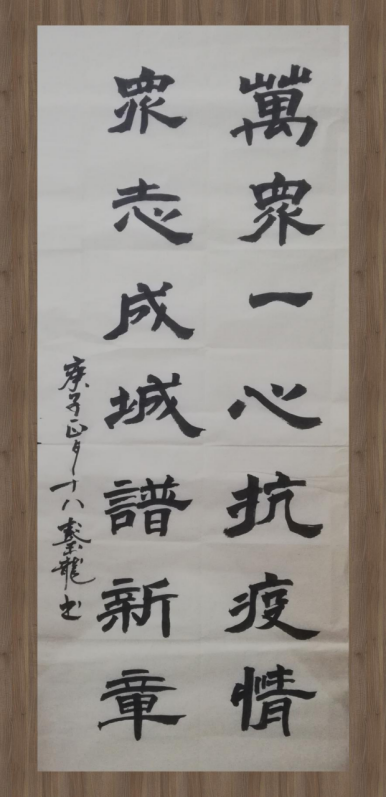 萬眾一心抗疫情
眾志成城譜新章
庚子正月十八龍书